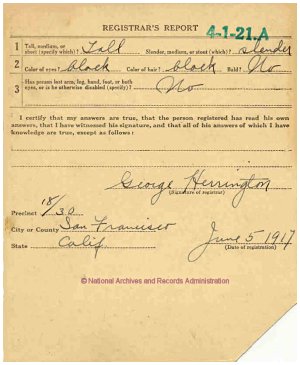 REGISTRAR'S REPORT
4-1-21.A
1 Tall, medium, or short (specify which)? Tall Slender, medium, or stout (which)? slender
2 Color of eyes? black Color of hair? black Bald? No
3 Has person lost arm, leg, hand, foot, or both eyes, or is he otherwise disabled (specify)? No
I certify that my answers are true, that the person registered has read his own
answers, that I have witnessed his signature, and that all of his answers of which I have
knowledge are true, except as follows:
George Herrington
(Signature of registrar)
Precinct 18/30
City or County San Francisco
State Calif.
June 5 1917
(Date of registration)
© National Archives and Records Administration